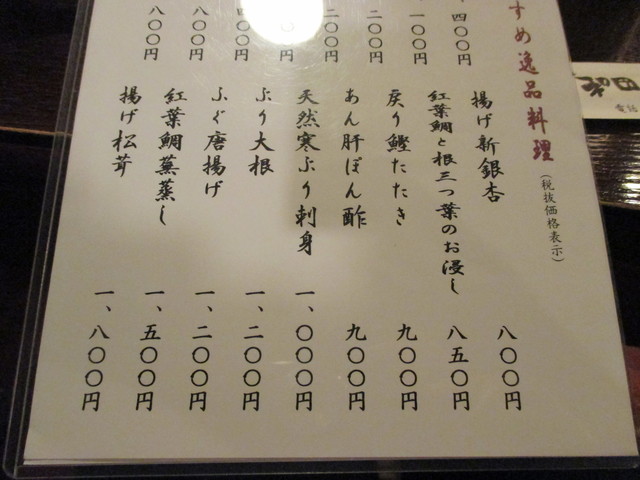 すめ逸品料理
(税抜価格表示)
四〇〇円
一〇〇円
二〇〇円
二〇〇円
〇円
四〇〇円
八〇〇円
八〇〇円
揚げ新銀杏
八〇〇円
紅葉鯛と根三つ葉のお浸し
八五〇円
戻り鰹たたき
九〇〇円
あん肝ぽん酢
九〇〇円
天然寒ぶり刺身
一、〇〇〇円
ぶり大根
一、二〇〇円
ふぐ唐揚げ
一、二〇〇円
紅葉鯛蕪蒸し
一、五〇〇円
揚げ松茸
一、八〇〇円
電話